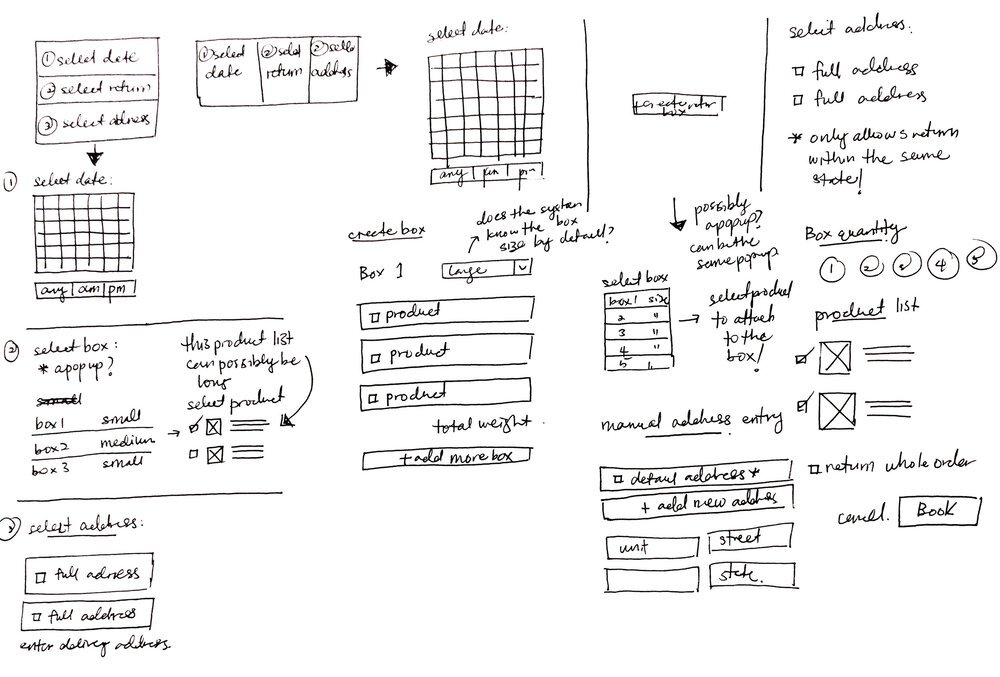 ① select date
② select return
③ select address
① select date
② select return
② select address
select date:
any | pm | pm
+ create return box
select address:
☐ full address
☐ full address
* only allows return
within the same
state!
① select date:
any | am | pm
create box
does the system
know the box
size by default?
Box 1
Large
☐ product
☐ product
☐ product
total weight.
+ add more box
possibly
a popup?
can be the
same popup
select box
box1 size
2 "
3 "
4 "
5
select product
to attach
to the
box!
Box quantity
① ② ③ ④ ⑤
product list
② select box:
* a popup?
small
box1 small
box2 medium
box3 small
this product list
can possibly be
long
select product
manual address entry
☐ default address *
+ add new address
unit
street
state.
☐ return whole order
cancel.
Book
③ select address:
☐ full address
☐ full address
enter delivery address.